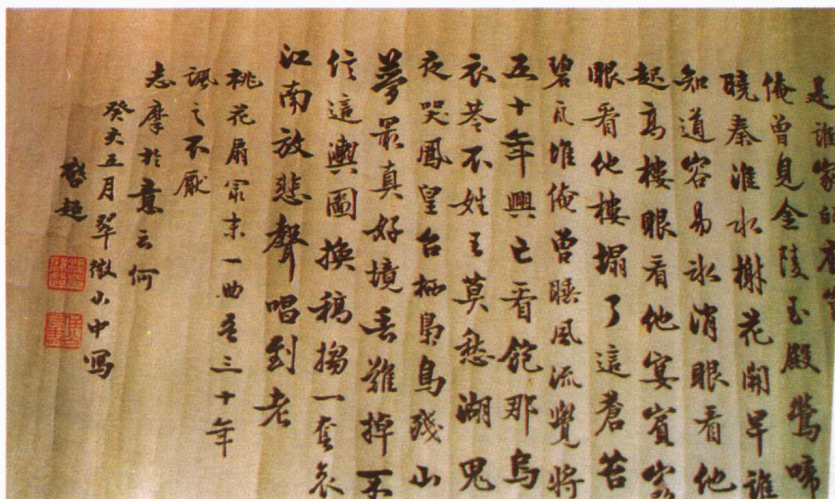 是誰家的
俺曾見金陵玉殿鶯啼
曉秦淮水榭花開早誰
知道容易氷消眼看他
起高樓眼看他宴賓客
眼看他樓塌了這蒼苔
碧瓦堆俺曾睡風流覺將
五十年興亡看飽那烏
衣巷不姓王莫愁湖鬼
夜哭鳳皇台栖梟鳥殘山
夢最真好境丟難掉不
信這輿圖換稿搊一套哀
江南放悲聲唱到老
桃花扇最末一曲吾三十年
諷之不厭
志摩於意云何
癸亥五月翠微山中寫
啓超